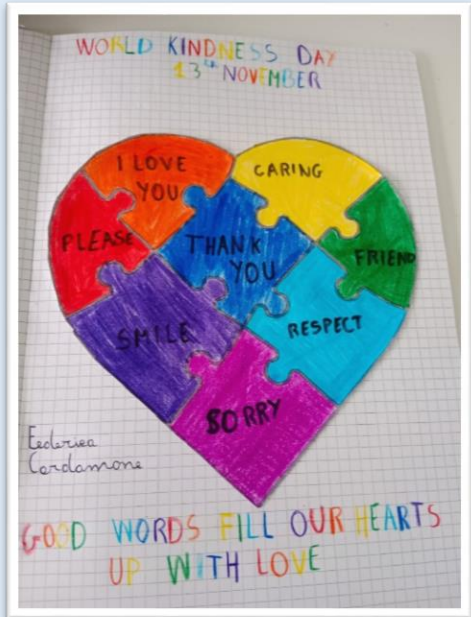 WORLD KINDNESS DAY
13th NOVEMBER
I LOVE
YOU
CARING
PLEASE
THANK
YOU
FRIEND
SMILE
RESPECT
SORRY
Federica
Cardamone
GOOD WORDS FILL OUR HEARTS
UP WITH LOVE